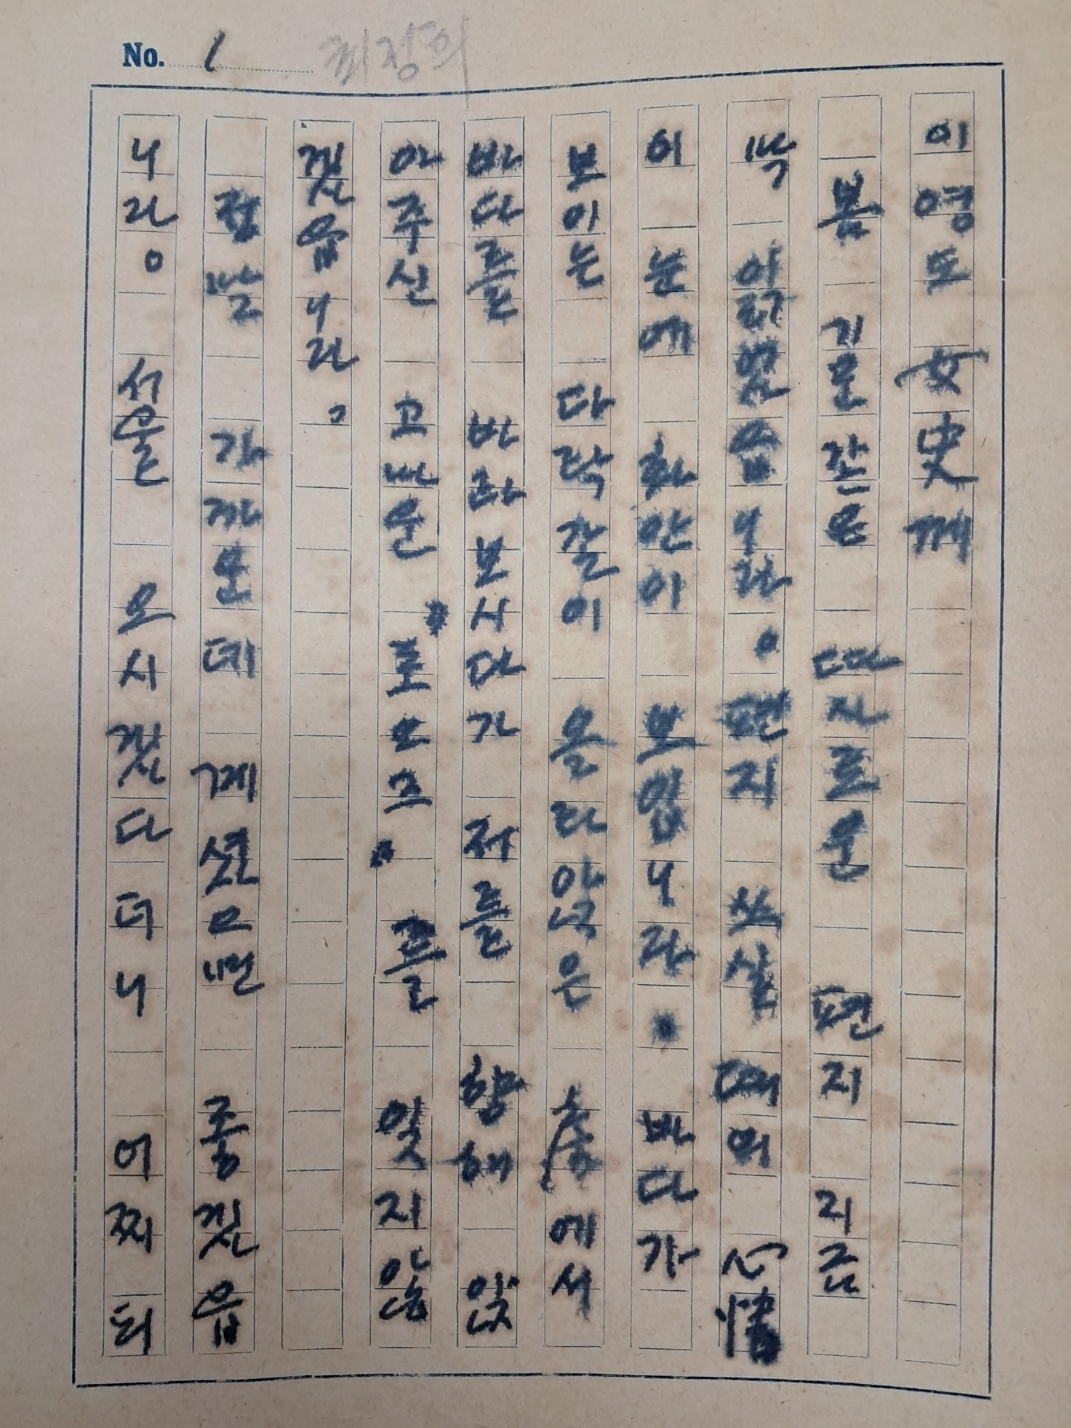 No. 1 최정희
이영도 女史께
봄 기운 같은 따사로운 편지 지금
막 이렀읍니다. 편지 쓰실 때의 心情
이 눈에 화안이 보입니다. 바다가
보이는 다락같이 올라앉은 춤에서
바다를 바라보시다가 저를 향해 앉
아주신 고마운 "포오즈" 를 잊지않
겠읍니다.
정말 가까운데 계셨으면 좋겠읍
니다. 서울 오시겠다더니 어찌 되